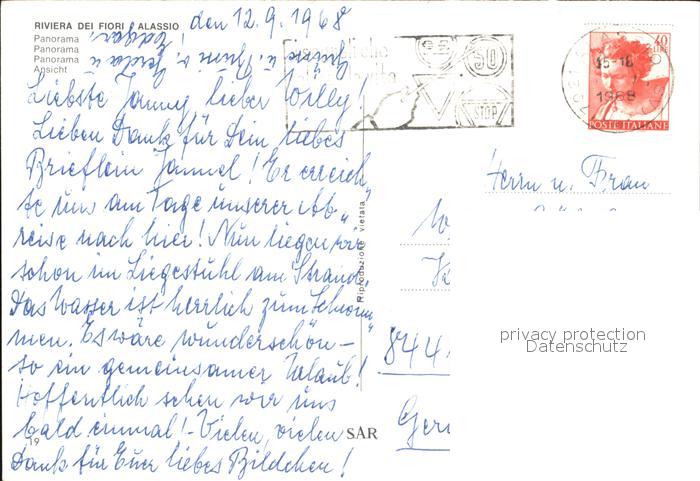 RIVIERA DEI FIORI - ALASSIO
Panorama
Panorama
Panorama
Ansicht
den 12.9.1968
Liebste Jannny, lieber Willy!
Lieben Dank für Dein liebes
Brieflein Jannel! Er erreich„
te uns am Tage unserer Ab„
reise nach hier! Nun liegen wir
schon im Liegestuhl am Strand.
Das Wasser ist herrlich zum Schwim„
men. Es wäre wunderschön –
so ein gemeinsamer Urlaub!
Hoffentlich sehen wir uns
bald einmal! – Vielen, vielen
Dank für Euer liebes Bildchen!
19
SAR
Riproduzione vietata
50
STOP
15-18
1968
40
LIRE
POSTE ITALIANE
Herrn u. Frau
844
Ger
privacy protection
Datenschutz